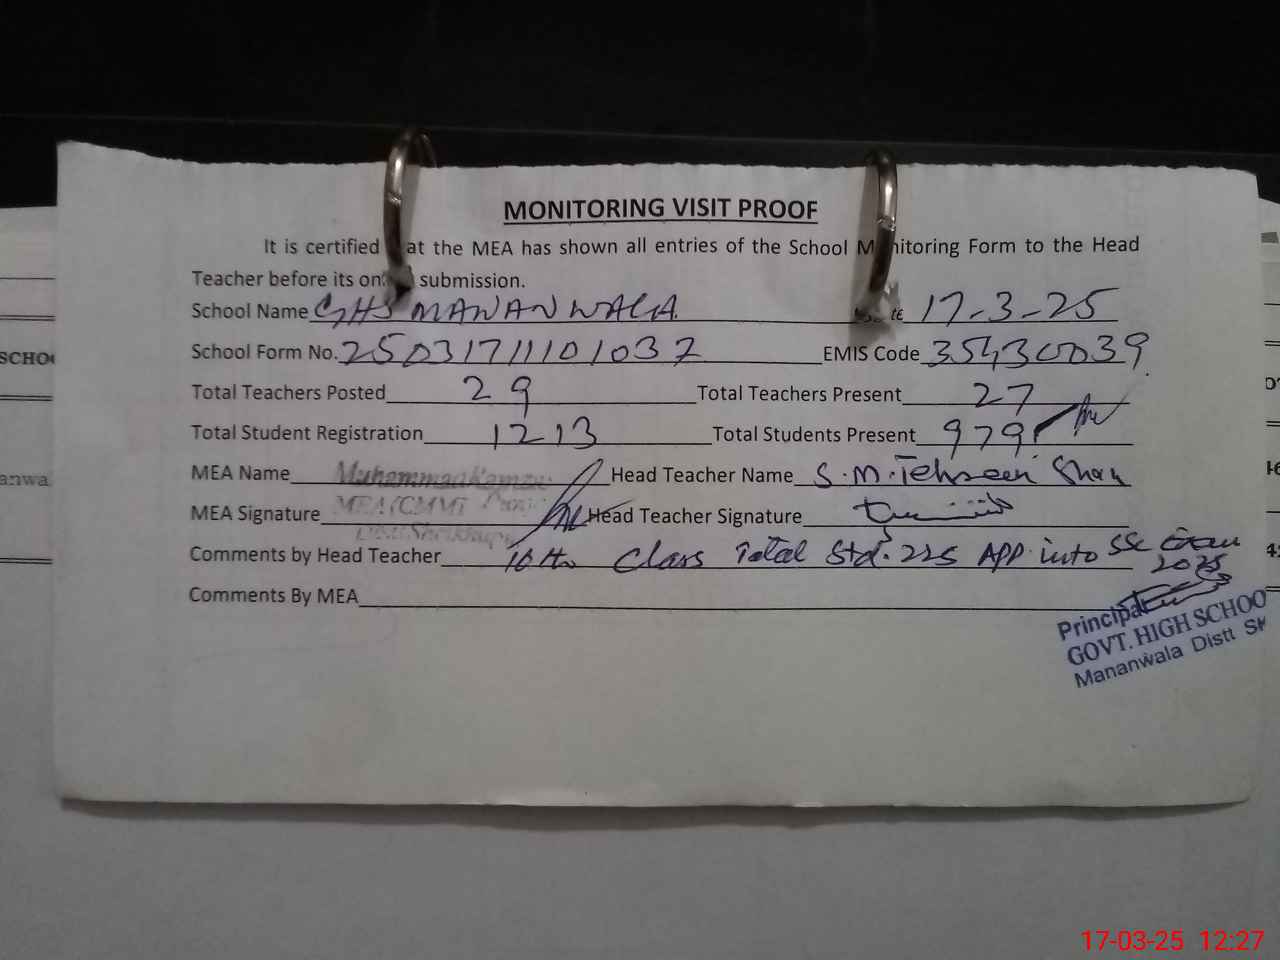 MONITORING VISIT PROOF
It is certified at the MEA has shown all entries of the School M nitoring Form to the Head
Teacher before its on submission.
School Name GHS MANANWALA te 17-3-25
School Form No. 25031711101037 EMIS Code 35430039
Total Teachers Posted 29 Total Teachers Present 27
Total Student Registration 1213 Total Students Present 979
MEA Name Muhammad Head Teacher Name S.M. Tehseen Shah
MEA Signature MEA (CMMT Head Teacher Signature
Comments by Head Teacher 10th Class Total Std. 225 App. into SSC Exam
2025
Comments By MEA
Principal
GOVT. HIGH SCHOO
Mananwala Distt SH
SCHO
anwa
17-03-25 12:27